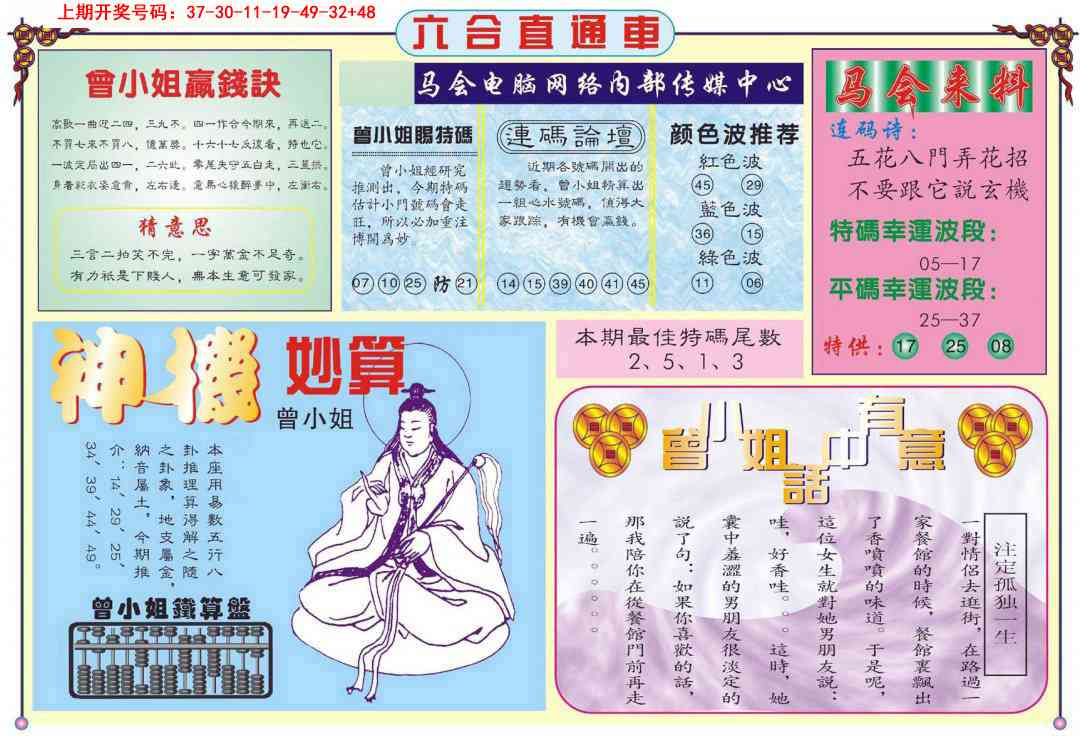 上期开奖号码：37-30-11-19-49-32+48
六合直通車
曾小姐贏錢訣
高歌一曲迎二四，三九不。四一作合今期來，再送二。
不買七來不買八，億萬獎。十六十七反復看，特也它。
一波定局出四一，二六旺。零尾失守五白走，三星拱。
身著彩衣姿意貪，左右逢。意馬心猿醉夢中，左衝右。
猜意思
三言二拍笑不完，一字萬金不足奇。
有力衹是下賤人，無本生意可發家。
马会电脑网络内部传媒中心
曾小姐賜特碼
曾小姐經研究
推測出，今期特碼
估計小門號碼會走
旺，所以必加重注
博開爲妙
07 10 25 防 21
連碼論壇
近期各號碼開出的
趨勢看，曾小姐精算出
一組心水號碼，值得大
家跟踪，有機會贏錢。
14 15 39 40 41 45
颜色波推荐
紅色波
45 29
藍色波
36 15
綠色波
11 06
马会来料
连码诗：
五花八門弄花招
不要跟它説玄機
特碼幸運波段：
05—17
平碼幸運波段：
25—37
特供：17 25 08
本期最佳特碼尾數
2、5、1、3
神機妙算
曾小姐
本座用易數五行八
卦推理算得解之隨
之卦象，地支屬金，
納音屬土，今期推
介：14、29、25、
34、39、44、49。
曾小姐鐵算盤
曾小姐話中有意
注定孤独一生
一對情侶去逛街，在路過一
家餐館的時候，餐館裏飄出
了香噴噴的味道。于是呢，
這位女生就對她男朋友説：
哇，好香哇。。。這時，她
囊中羞澀的男朋友很淡定的
説了句：如果你喜歡的話，
那我陪你在從餐館門前再走
一遍。。。。。。